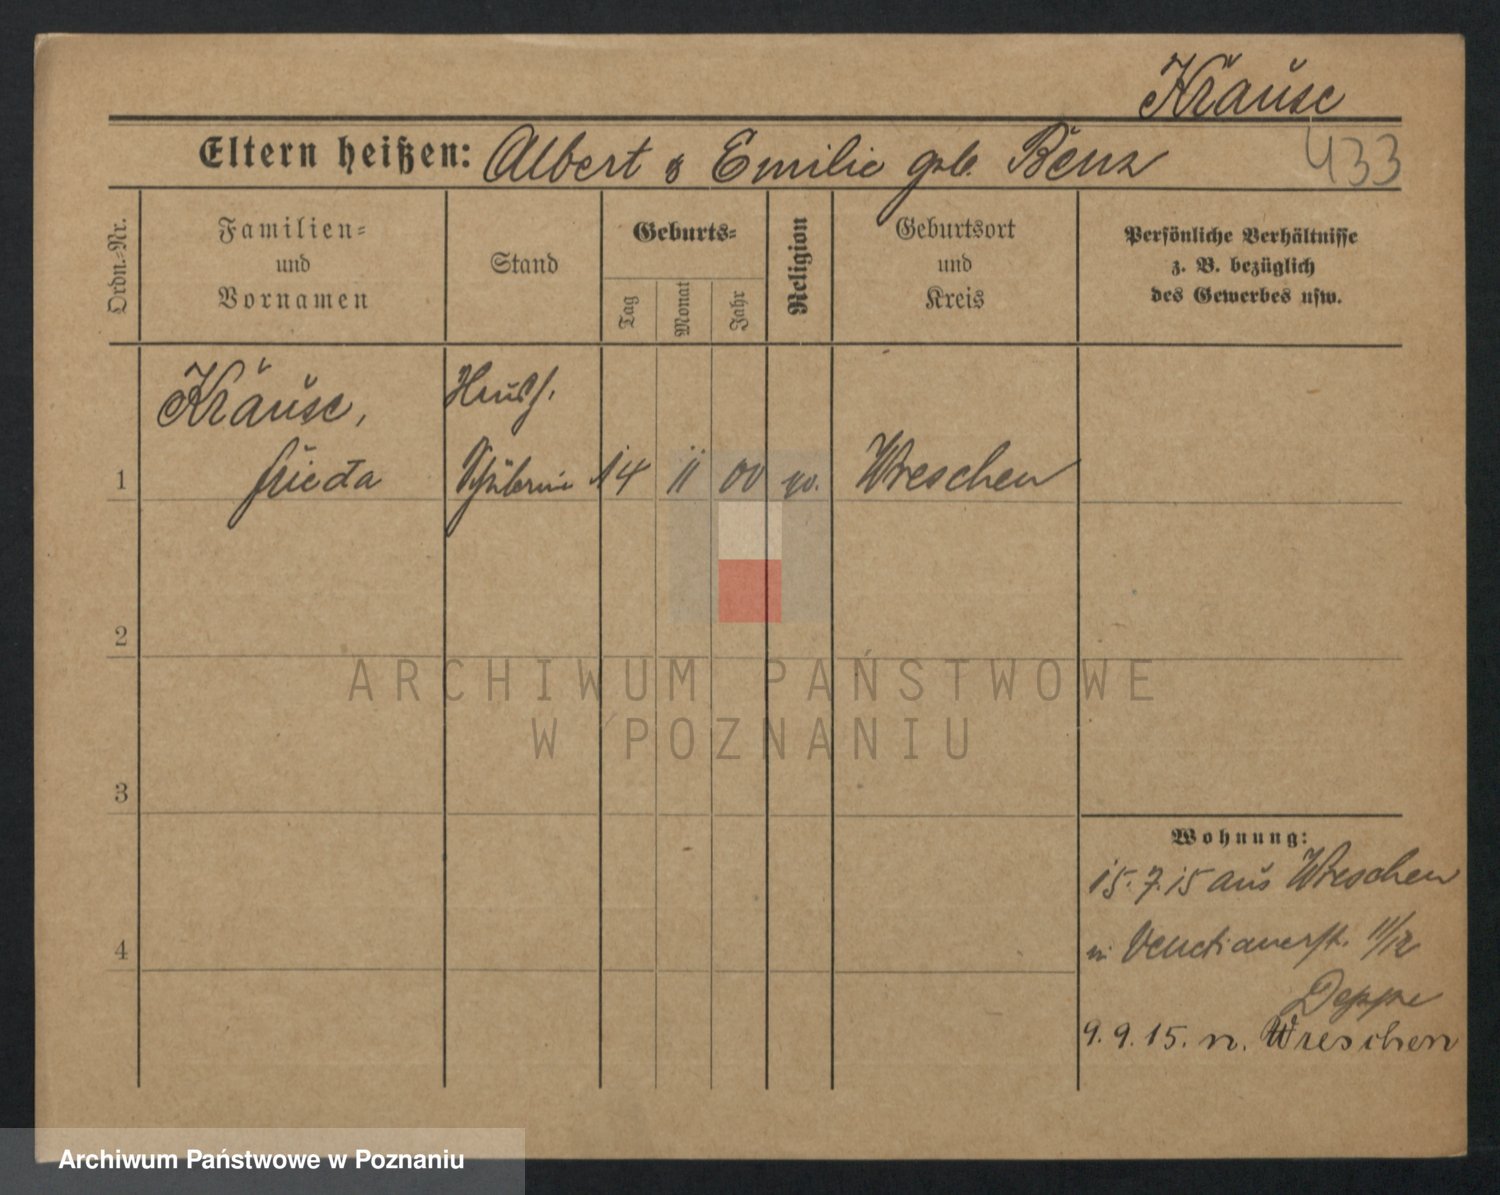 Krause
433
Eltern heißen: Albert & Emilie geb. Benz
Ordn.-Nr.
Familien-
und
Vornamen
Stand
Geburts-
Tag
Monat
Jahr
Religion
Geburtsort
und
Kreis
Persönliche Verhältnisse
z. B. bezüglich
des Gewerbes usw.
Krause,
Haush.
1 Frieda Schülerin 14 11 00 ev. Wreschen
2
ARCHIWUM PAŃSTWOWE
W POZNANIU
3
Wohnung:
15.7.15 aus Wreschen
4
n. Venetianerstr. 11/12
Deppe
9.9.15. n. Wreschen
Archiwum Państwowe w Poznaniu